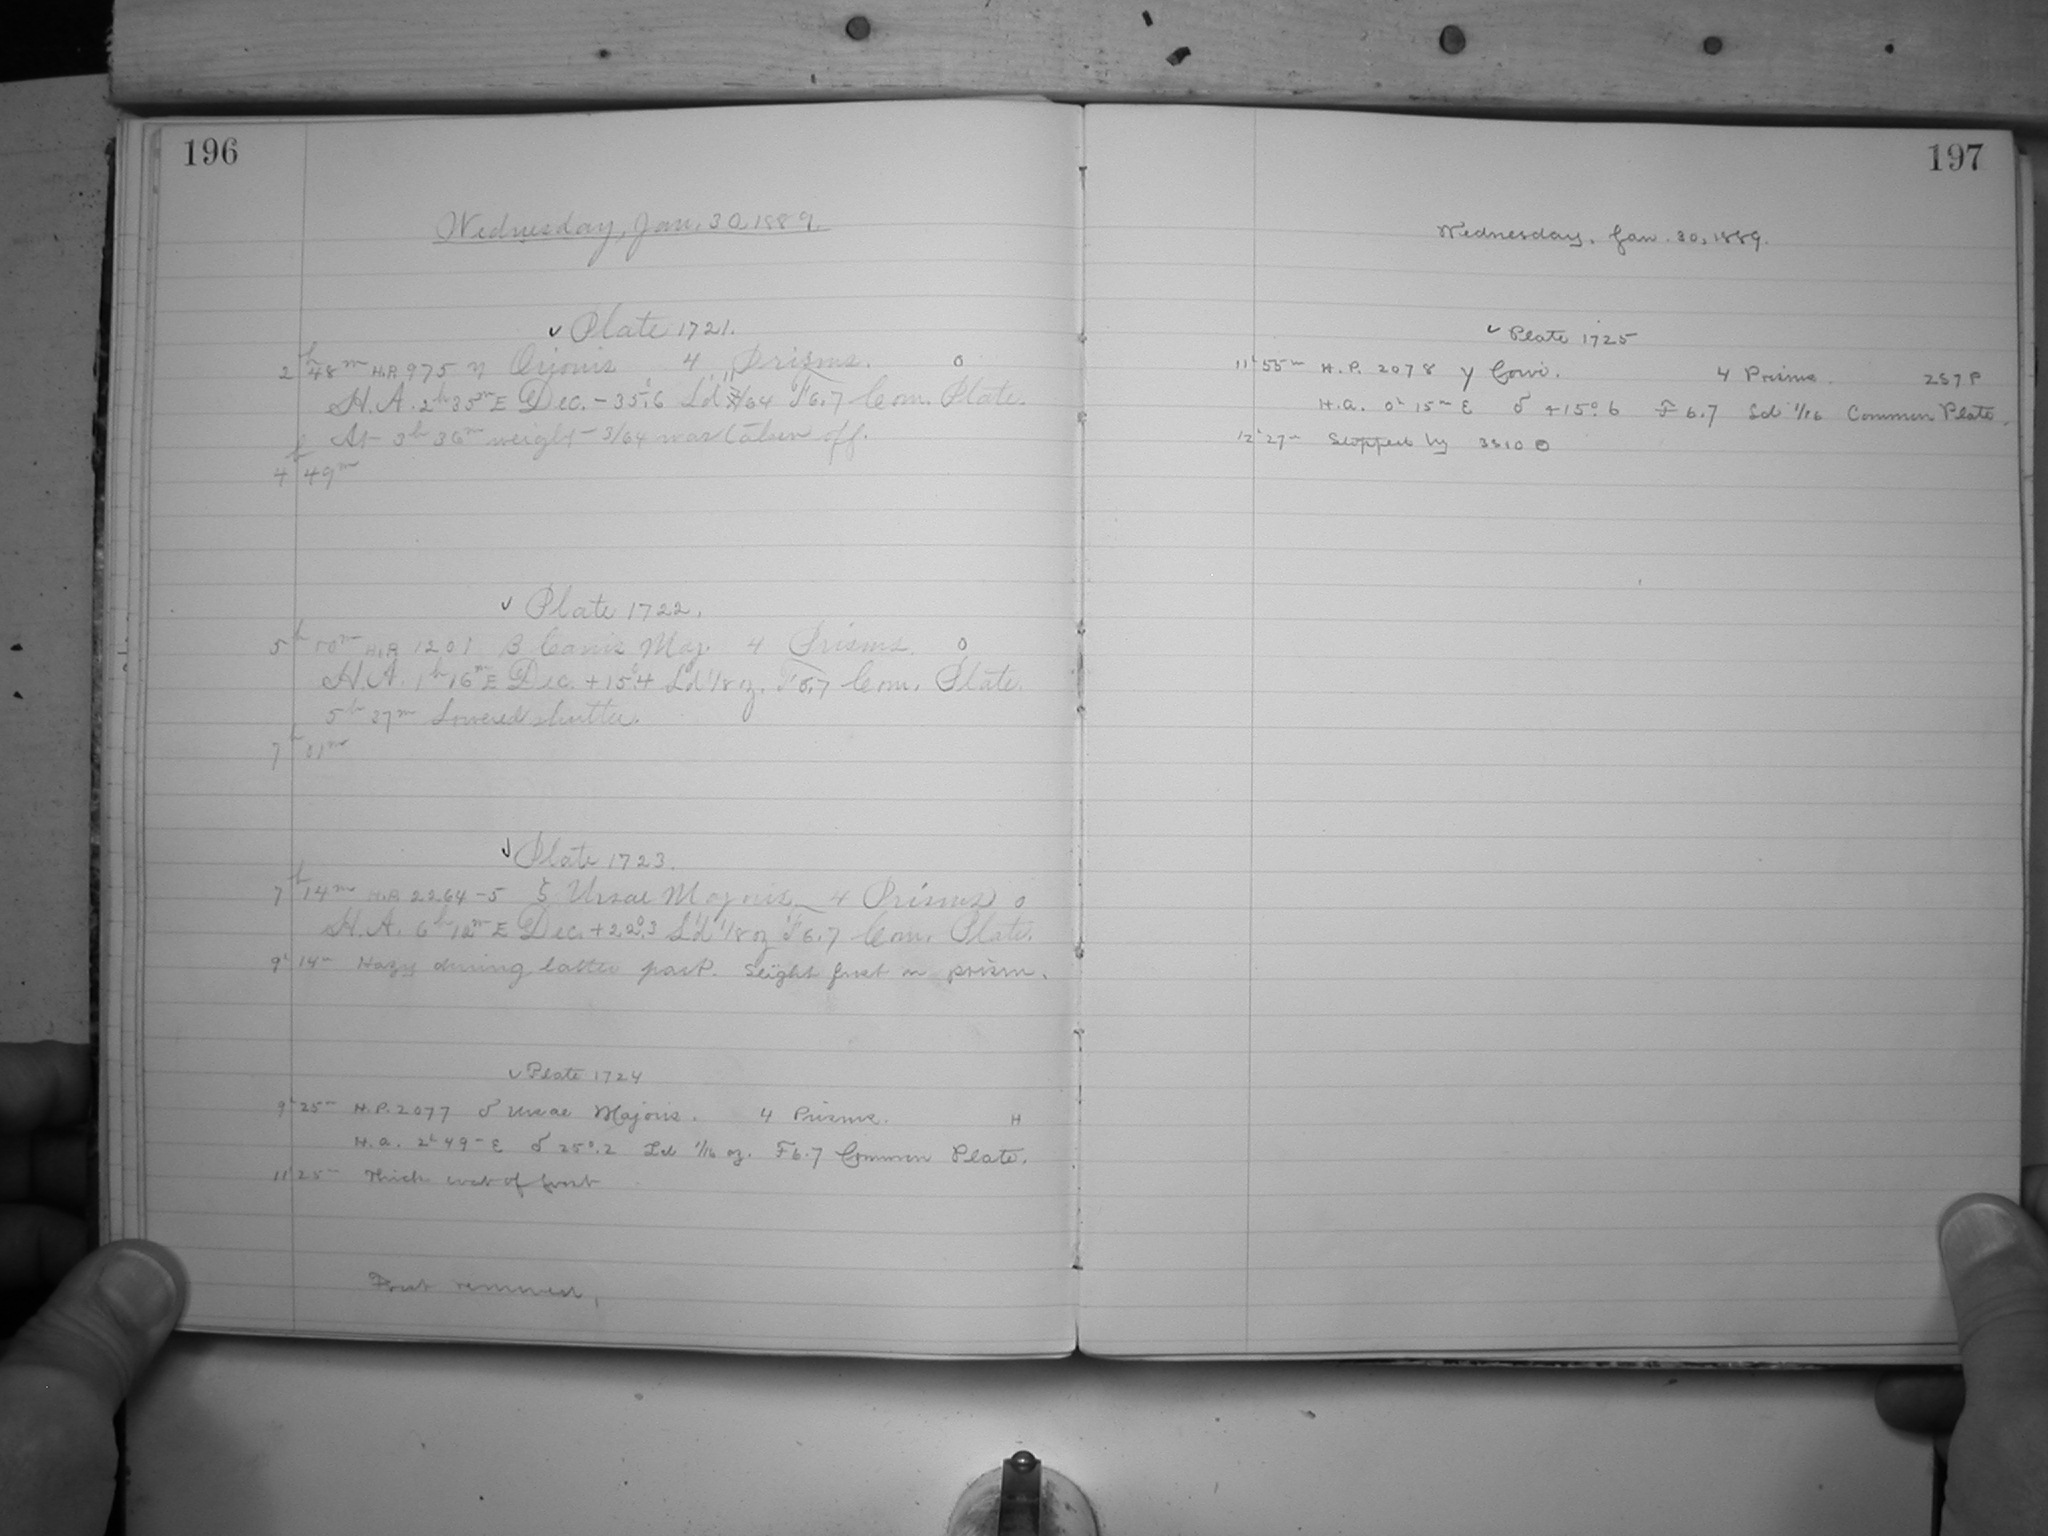 196
Wednesday, Jan. 30, 1889.
✓ Plate 1721.
2h 48m H.P. 975 η Orionis 4 Prisms. O
H.A. 2h 35m E Dec. -35°.6 L'd /64 F6.7 Com. Plate.
At 3h 36m weight 3/64 was taken off.
4h 49m
✓ Plate 1722.
5h 00m H.P. 1201 β Canis Maj. 4 Prisms. O
H.A. 1h 16m E Dec. +15°.4 L'd 1/8 oz. F6.7 Com. Plate.
5h 37m Lowered shutter.
7h 01m
✓ Plate 1723.
7h 14m H.P. 2264-5 ζ Ursae Majoris 4 Prisms O
H.A. 6h 12m E Dec. +22°.3 L'd 1/8 oz F6.7 Com. Plate.
9h 14m Hazy during latter part. Slight frost on prism.
✓ Plate 1724
9h 25m H.P. 2077 δ Ursae Majoris. 4 Prisms. H
H.a. 2h 49m E δ 25°.2 Ld 1/16 oz. F6.7 Common Plate.
11h 25m Thick coat of frost
Frost removed.
197
Wednesday, Jan. 30, 1889.
✓ Plate 1725
11h 55m H.P. 2078 γ Corvi. 4 Prisms. 257 P
H.a. 0h 15m E δ +15°.6 F 6.7 Ld 1/16 Common Plate.
12h 27m Stopped by 3510